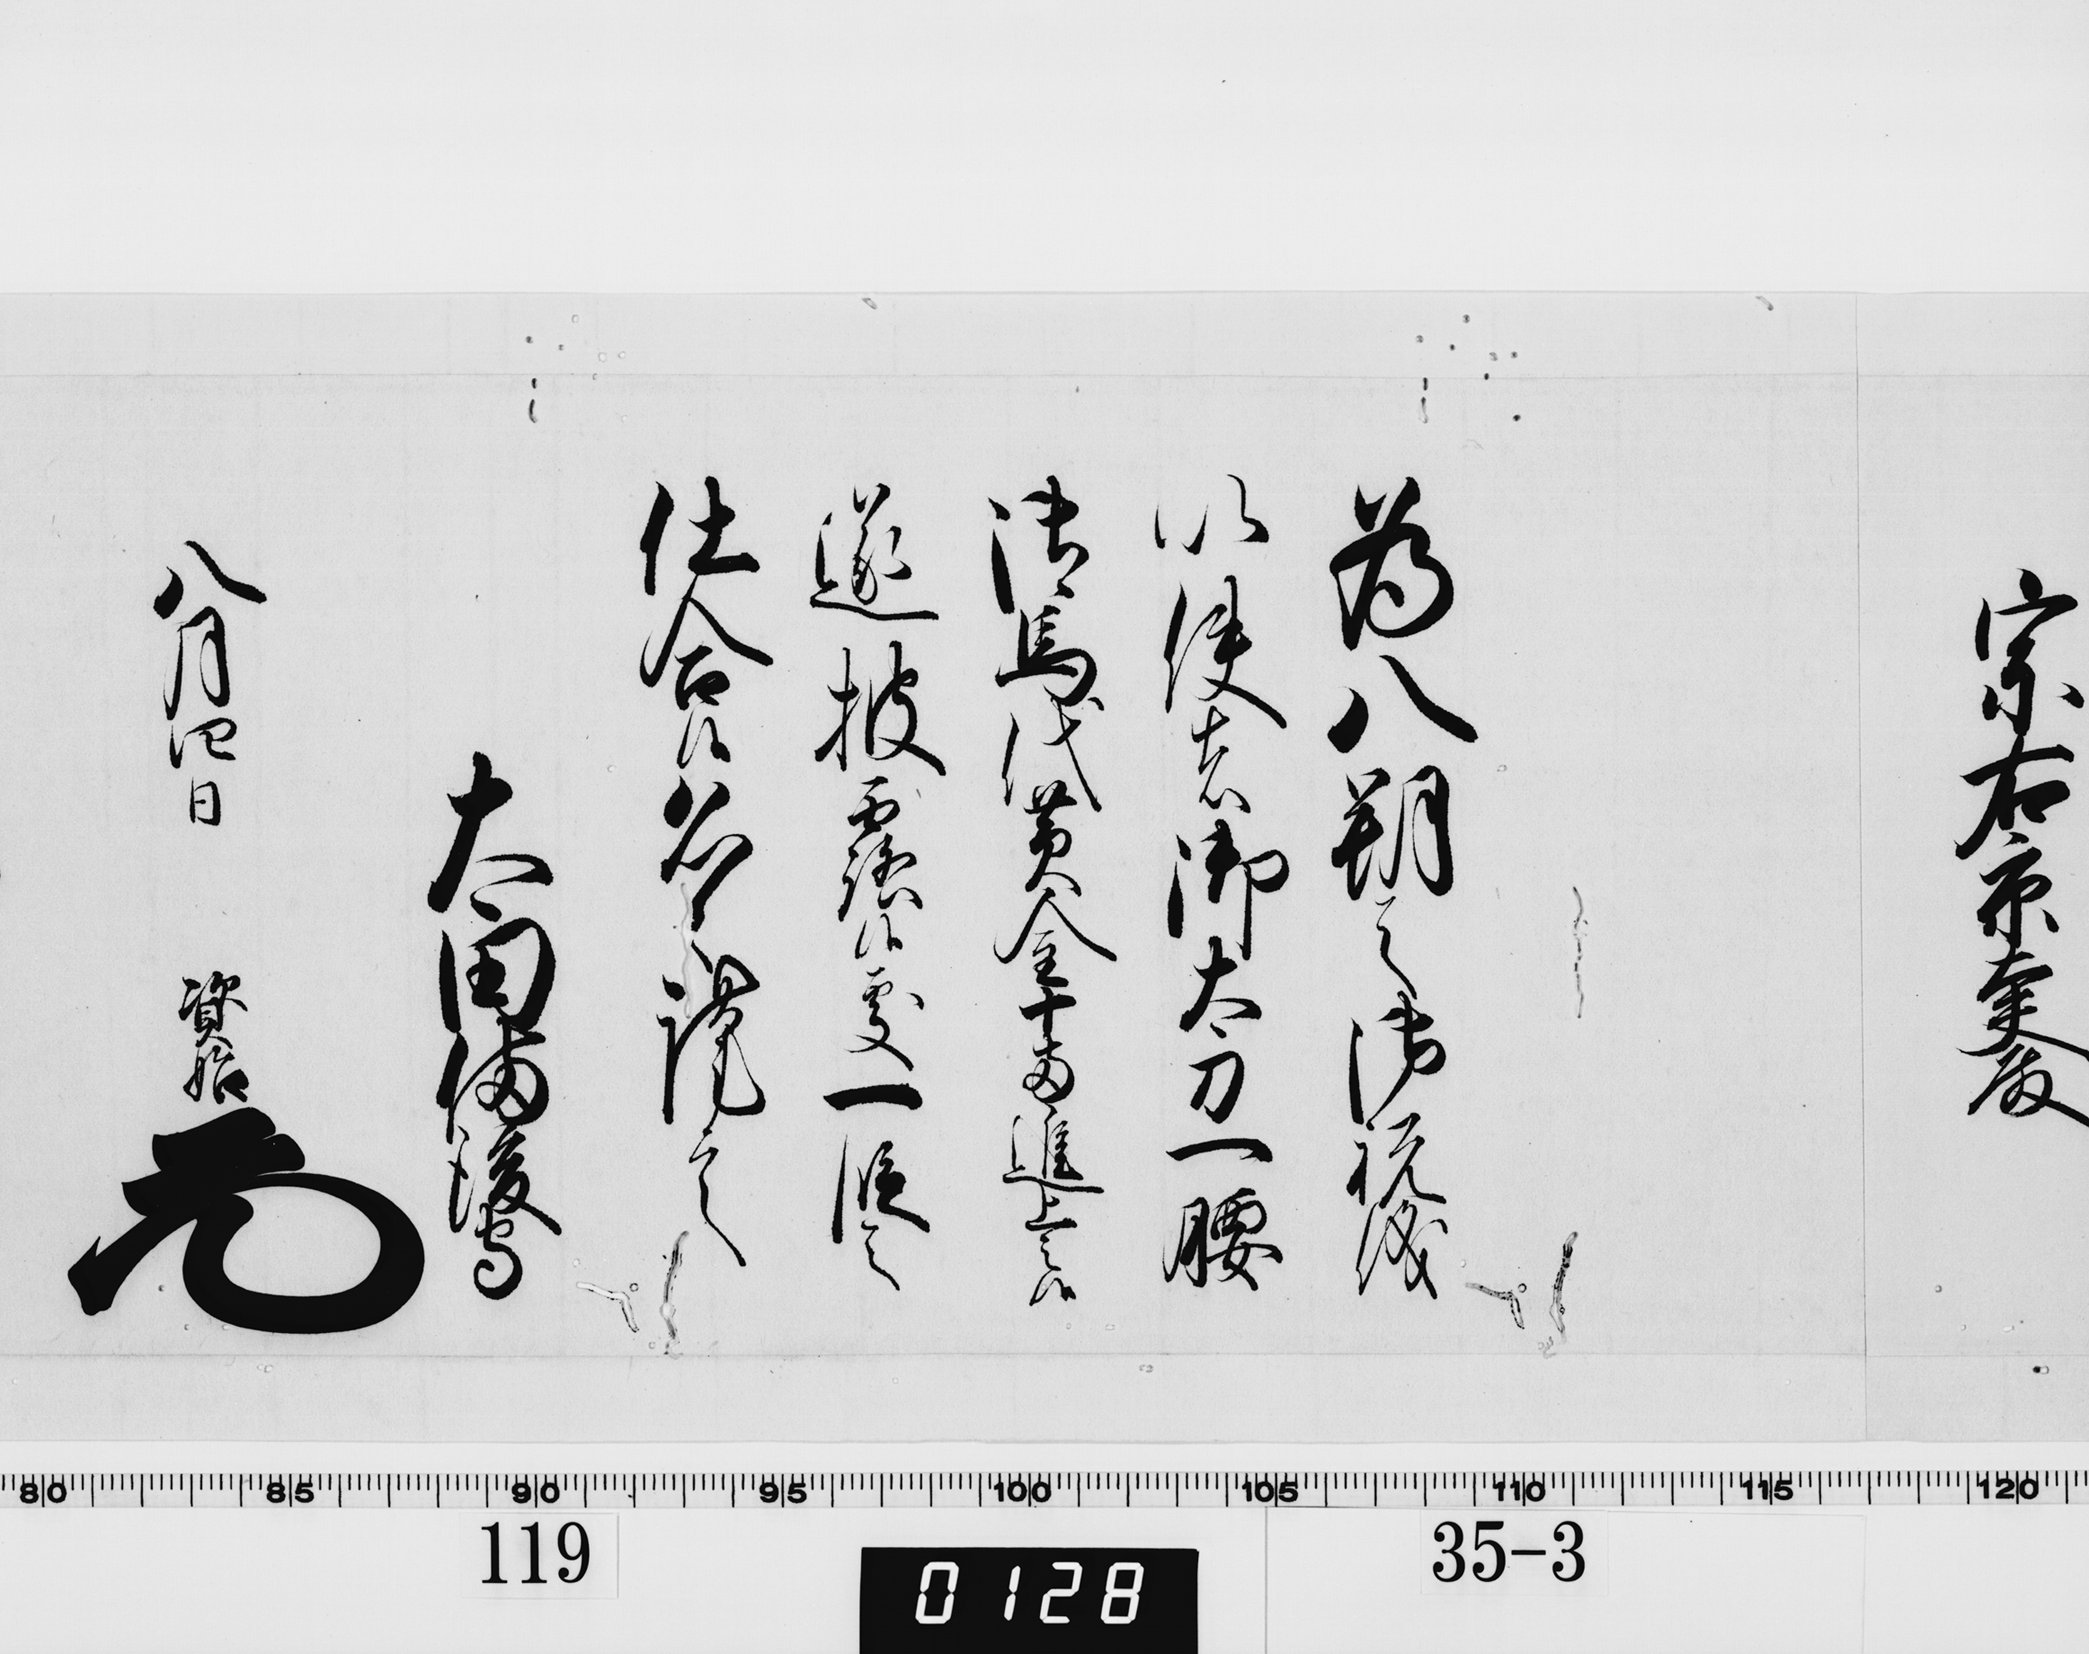 宗右京大夫殿
為八朔之御祝儀
以使者御太刀一腰
御馬代黄金十両進上之候
遂披露候処一段之
仕合候恐々謹言
太田備後守
八月四日 資始
80 85 90 95 100 105 110 115 120
119
35-3
0128